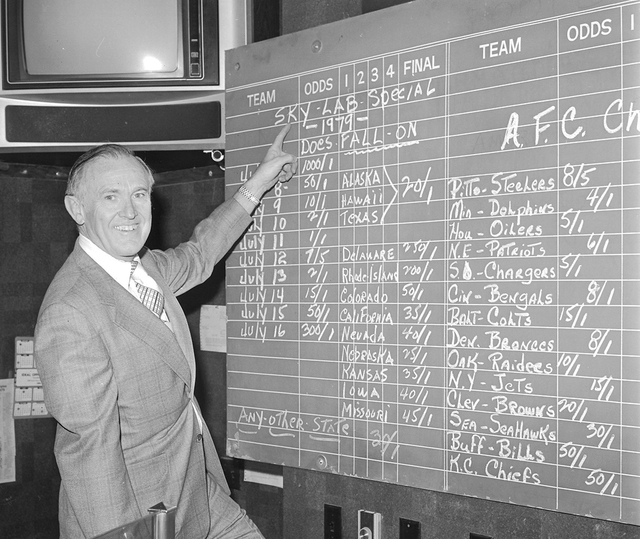 TEAM ODDS 1 2 3 4 FINAL
SKY-LAB-SPECIAL
-1979-
DOES FALL-ON
1000/1
8- 50/1 ALASKA
9 10/1 HAWAII 20/1
10 2/1 TEXAS
JULY 11 1/1
JULY 12 7/5 DELAWARE
JULY 13 2/1 Rhode Island 200/1
JULY 14 15/1 COLORADO 50/1
JULY 15 50/1 CALIFORNIA 35/1
JULY 16 300/1 NEVADA 40/1
NEBRASKA 25/1
KANSAS 35/1
IOWA 40/1
MISSOURI 45/1
ANY-OTHER-STATE
TEAM ODDS 1
A.F.C. Ch
PITTS-STEELERS 8/5
MIA-DOLPHINS 4/1
HOU-OILERS 5/1
N.E-PATRIOTS 6/1
S.D-CHARGERS 5/1
CIN-BENGALS 8/1
BALT-COLTS 15/1
DEN. BRONCOS 8/1
OAK-RAIDERS 10/1
N.Y-JETS 15/1
CLEV-BROWNS 20/1
SEA-SEAHAWKS 30/1
BUFF-BILLS 50/1
K.C. CHIEFS 50/1